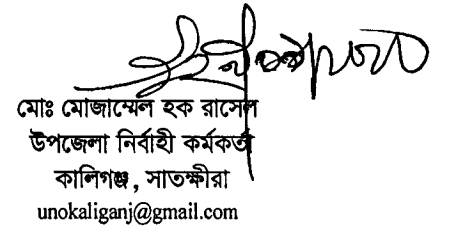 মোঃ মোজাম্মেল হক রাসেল
উপজেলা নির্বাহী কর্মকর্তা
কালিগঞ্জ, সাতক্ষীরা
unokaliganj@gmail.com